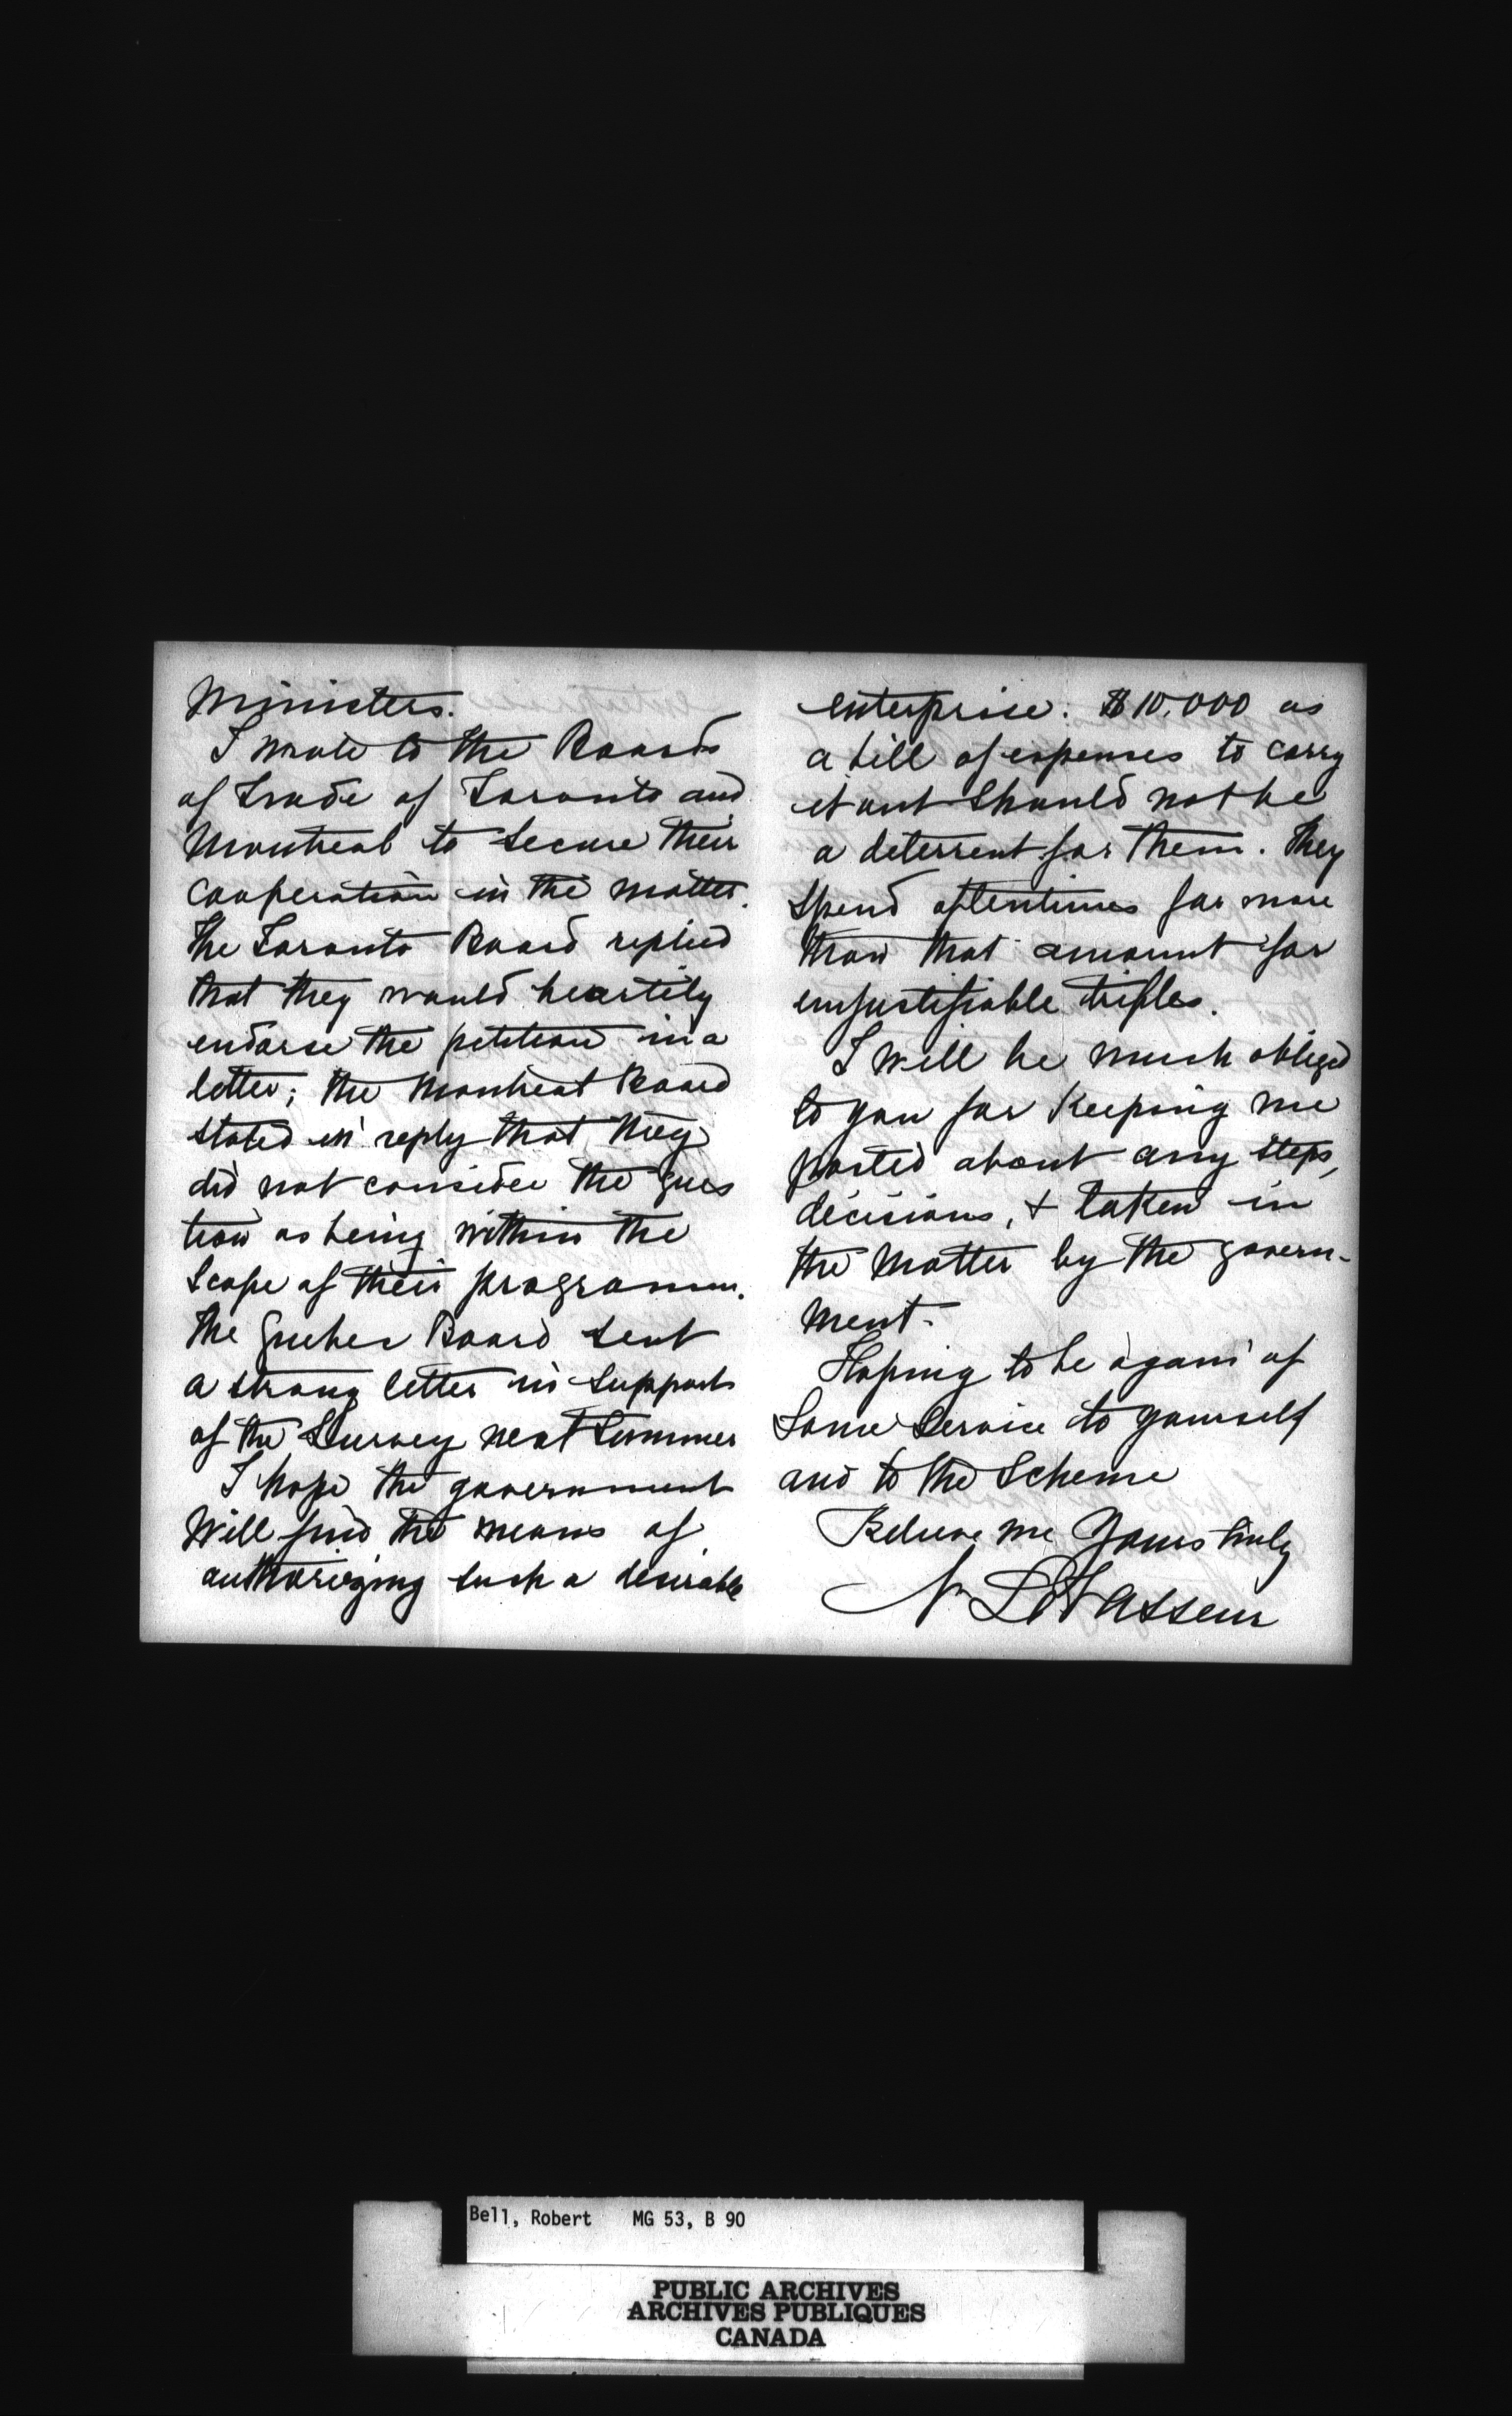 Ministers.
I wrote to the Boards
of Trade of Toronto and
Montreal to secure their
cooperation in the matter.
The Toronto Board replied
that they would heartily
endorse the petition in a
letter; the Montreal Board
stated in reply that they
did not consider the ques
tion as being within the
scope of their programm.
The Quebec Board sent
a strong letter in support
of the Survey next Summer
I hope the government
Will find the means of
authorizing such a desirable
enterprise. $10.000 as
a bill of expenses to carry
it out should not be
a deterrent for them. They
spend oftentimes far more
than that amount for
unjustifiable trifles.
I will be much obliged
to you for Keeping me
posted about any steps,
decisions, & taken in
the Matter by the govern-
ment.
Hoping to be again of
Some Service to yourself
and to the Scheme
Believe me Yours truly
N. LeVasseur
Bell, Robert MG 53, B 90
PUBLIC ARCHIVES
ARCHIVES PUBLIQUES
CANADA